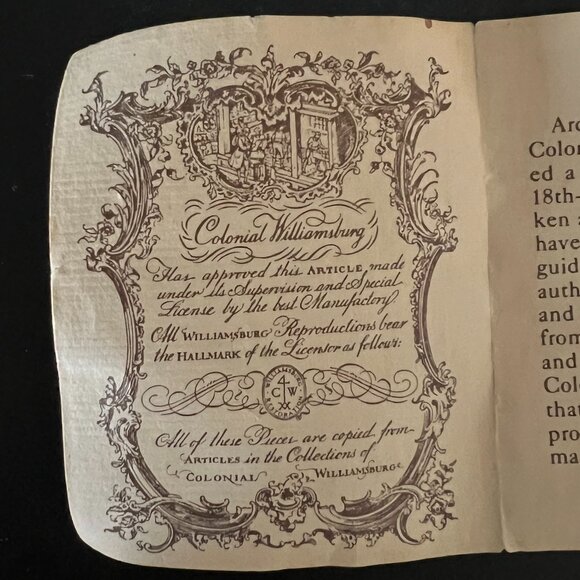 Colonial Williamsburg
Has approved this ARTICLE made
under its Supervision and Special
License by the best Manufactory
All WILLIAMSBURG Reproductions bear
the HALLMARK of the Licensor as follows:
WILLIAMSBURG
CW
RESTORATION
All of these Pieces are copied from
ARTICLES in the Collections of
COLONIAL WILLIAMSBURG
Arc
Colon
ed a
18th-
ken a
have
guid
auth
and
from
and
Colo
that
pro
ma